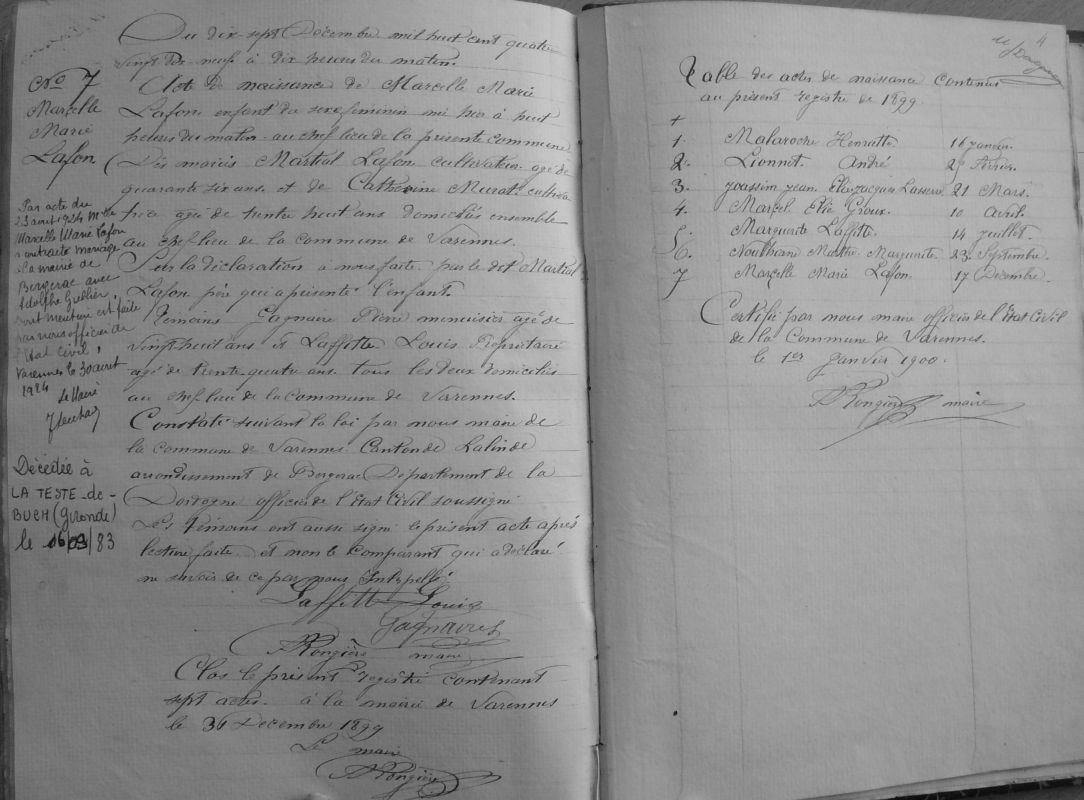 Du dix-sept Décembre mil huit cent quatre
vingt dix-neuf à dix heures du matin.
Acte de naissance de Marcelle Marie
Lafon enfant du sexe féminin née hier à huit
heures du matin au chef lieu de la présente commune
Dès mariés Martial Lafon cultivateur agé de
quarante six ans. et de Catherine Murat cultiva
trice agée de trente huit ans domiciliés ensemble
au chef lieu de la commune de Varennes.
Sur la déclaration à nous faite par le dit Martial
Lafon père qui a présenté l'enfant.
Témoins Gagnaire Pierre menuisier agé de
vingt huit ans et Laffitte Louis Propriétaire
agé de trente-quatre ans tous les deux domiciliés
au chef lieu de la commune de Varennes.
Constaté suivant la loi par nous maire de
la commune de Varennes Canton de Lalinde
arrondissement de Bergerac Département de la
Dordogne officier de l'état Civil soussigné
Les témoins ont aussi signé le présent acte après
lecture faite et non le comparant qui a déclaré
ne savoir de ce par nous Interpellé
Laffitte Louis
Gagnaire
Rongière maire
Clos le présent registre contenant
sept actes. à la mairie de Varennes
le 31 Décembre 1899
Le maire
Rongière
No 7
Marcelle
Marie
Lafon
Par acte du
23 avril 1924 Mlle
Marcelle Marie Lafon
a contracté mariage
à la mairie de
Bergerac avec
Adolphe Grellier,
dont mention est faite
par nous officier de
l'Etat Civil,
Varennes le 30 avril
1924
Le Maire
Décédée à
LA TESTE-de-
BUCH (Gironde)
le 16/09/83
4
Table des actes de naissance contenus
au présent registre de 1899.
+
1. Malaroche Henriette 16 janvier.
2. Lionnet André 29 Février.
3. Joassim Jean Elie Jacques Lasserre 21 Mars.
4. Marcel Elie Groux. 10 avril.
5. Marguerite Laffitte. 14 juillet.
6. Marthe Marguerite 23. Septembre.
7 Marcelle Marie Lafon. 17 Décembre.
Certifié par nous maire officier de l'état Civil
de la Commune de Varennes.
le 1er Janvier 1900.
Rongière maire